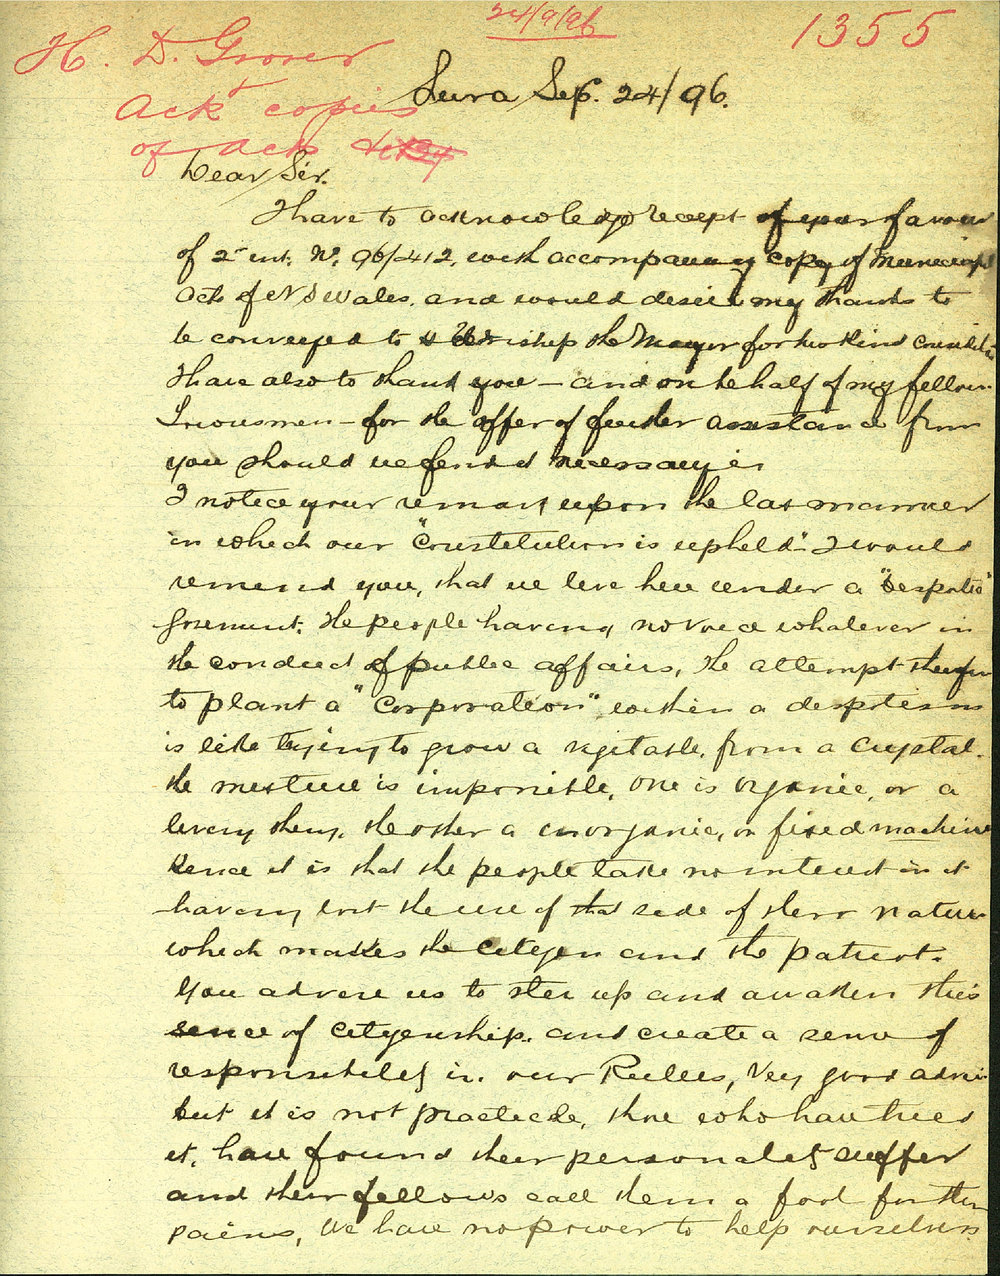 24/9/96
1355
H. D. Grover
Ack copies
of Ack
Suva Sep. 24/96.
Dear Sir.
I have to acknowledge receipt of your favour
of 2nd inst. No. 96/412, with accompanying copy of Municipal
Acts of N S Wales. and would desire my thanks to
be conveyed to Worship the Mayor for his kind
I have also to thank you — and on behalf of my fellow
Townsmen — for the offer of further assistance from
you should we find it necessary
I notice your remark upon the lax manner
in which our "Constitution is upheld". I would
remind you, that we live here under a "despotic"
Government. The people having no voice whatever in
the conduct of public affairs, the attempt therefore
to plant a "Corporation" within a despotism
is like trying to grow a vegetable, from a Crystal.
the mixture is impossible, one is organic, or a
living thing, the other a inorganic, or fixed machine
hence it is that the people take no interest in it
having lost the use of that side of their nature
which makes the citizen and the patriot.
You advise us to stir up and awaken this
sense of citizenship. and create a sense of
responsibility in our Rulers, Very good advice
but it is not practicable, those who have tried
it, have found their personality suffer
and their fellows call them a fool for their
pains, We have no power to help ourselves.